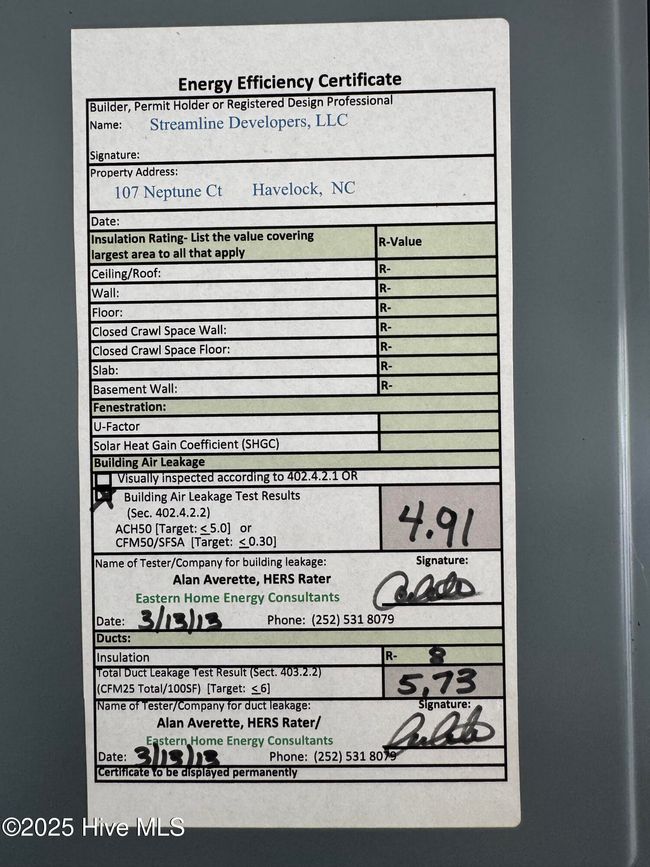 Energy Efficiency Certificate
Builder, Permit Holder or Registered Design Professional
Name: Streamline Developers, LLC
Signature:
Property Address:
107 Neptune Ct Havelock, NC
Date:
Insulation Rating- List the value covering
largest area to all that apply
R-Value
Ceiling/Roof: R-
Wall: R-
Floor: R-
Closed Crawl Space Wall: R-
Closed Crawl Space Floor: R-
Slab: R-
Basement Wall: R-
Fenestration:
U-Factor
Solar Heat Gain Coefficient (SHGC)
Building Air Leakage
Visually inspected according to 402.4.2.1 OR
Building Air Leakage Test Results
(Sec. 402.4.2.2)
ACH50 [Target: ≤5.0] or
CFM50/SFSA [Target: ≤0.30]
4.91
Name of Tester/Company for building leakage: Signature:
Alan Averette, HERS Rater
Eastern Home Energy Consultants
Date: 3/13/13 Phone: (252) 531 8079
Ducts:
Insulation R- 8
Total Duct Leakage Test Result (Sect. 403.2.2)
(CFM25 Total/100SF) [Target: ≤6]
5.73
Name of Tester/Company for duct leakage: Signature:
Alan Averette, HERS Rater/
Eastern Home Energy Consultants
Date: 3/13/13 Phone: (252) 531 8079
Certificate to be displayed permanently
©2025 Hive MLS